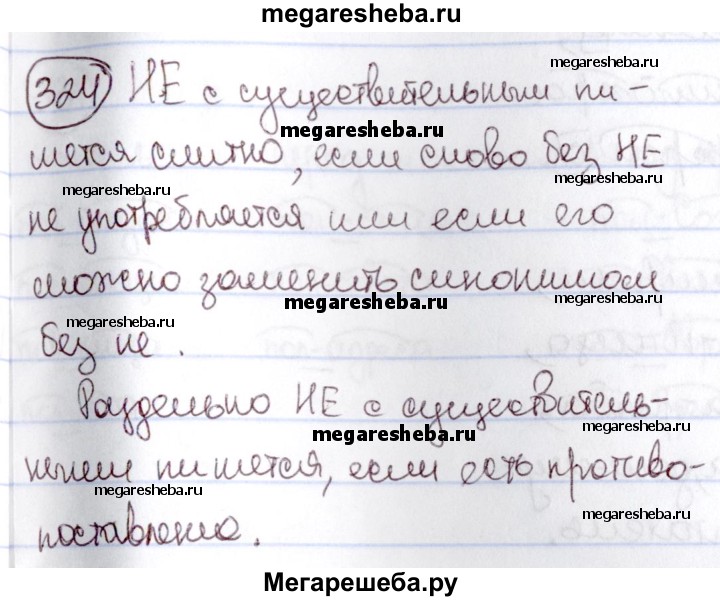 megaresheba.ru
324 НЕ с существительными пи-
megaresheba.ru
megaresheba.ru
шется слитно, если слово без НЕ
megaresheba.ru
megaresheba.ru
не употребляется или если его
можно заменить синонимом
megaresheba.ru
megaresheba.ru
megaresheba.ru
без не.
Раздельно НЕ с существитель-
megaresheba.ru
megaresheba.ru
ными пишется, если есть противо-
megaresheba.ru
megaresheba.ru
поставление.
Мегарешеба.ру